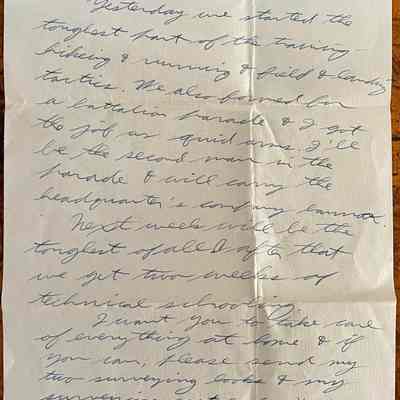 Yesterday we started the
toughest part of the training -
hiking & running & field & landing
tactics. We also formed for
a battalion parade & I got
the job as guid arms. I'll
be the second man in the
parade & will carry the
headquarter's company banner.
Next week will be the
toughest of all & after that
we get two weeks of
technical schooling.
I want you to take care
of everything at home & if
you can, please send my
two surveying books & my
surveying